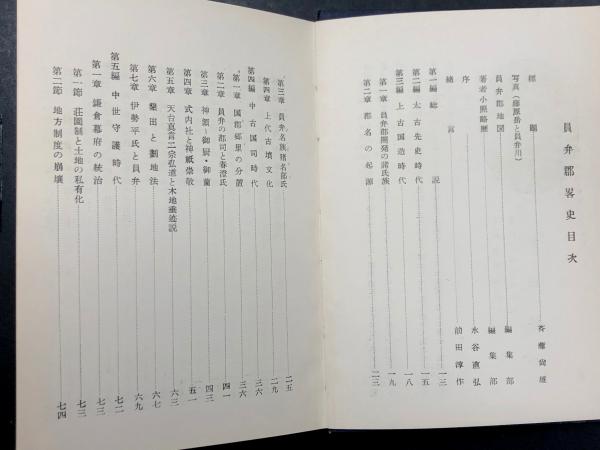 員弁郡畧史目次
標題 斉藤尚雄
写真(藤原岳と員弁川) 編集部
員弁郡地図 編集部
著者小照略歴 水谷直弘
序 前田淳作
緒言
第一編 総説 一三
第二編 太古先史時代 一五
第三編 上古国造時代 一八
第一章 員弁郡開発の諸氏族 一九
第二章 郡名の起源 二三
第三章 員弁名族猪名部氏 二五
第四章 上代古墳文化 二九
第四編 中古国司時代 三六
第一章 国郡郷里の分置 三六
第二章 員弁の郡司と春澄氏 四一
第三章 神領・御厨・御薗 四三
第四章 式内社と神祇崇敬 五一
第五章 天台真言二宗弘通と本地垂迹説 六三
第六章 墾田と劃地法 六七
第七章 伊勢平氏と員弁 六九
第五編 中世守護時代 七二
第一章 鎌倉幕府の統治 七三
第一節 荘園制と土地の私有化 七三
第二節 地方制度の崩壊 七四